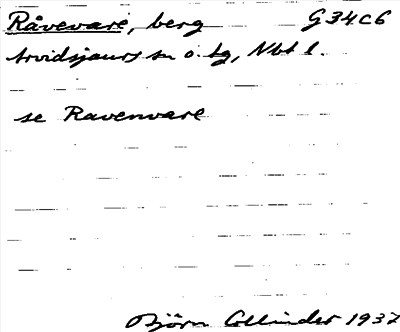 Råvevare, berg G34c6
Arvidsjaurs sn o. tg, Nbt l.
se Ravenvare
Björn Collinder 1937